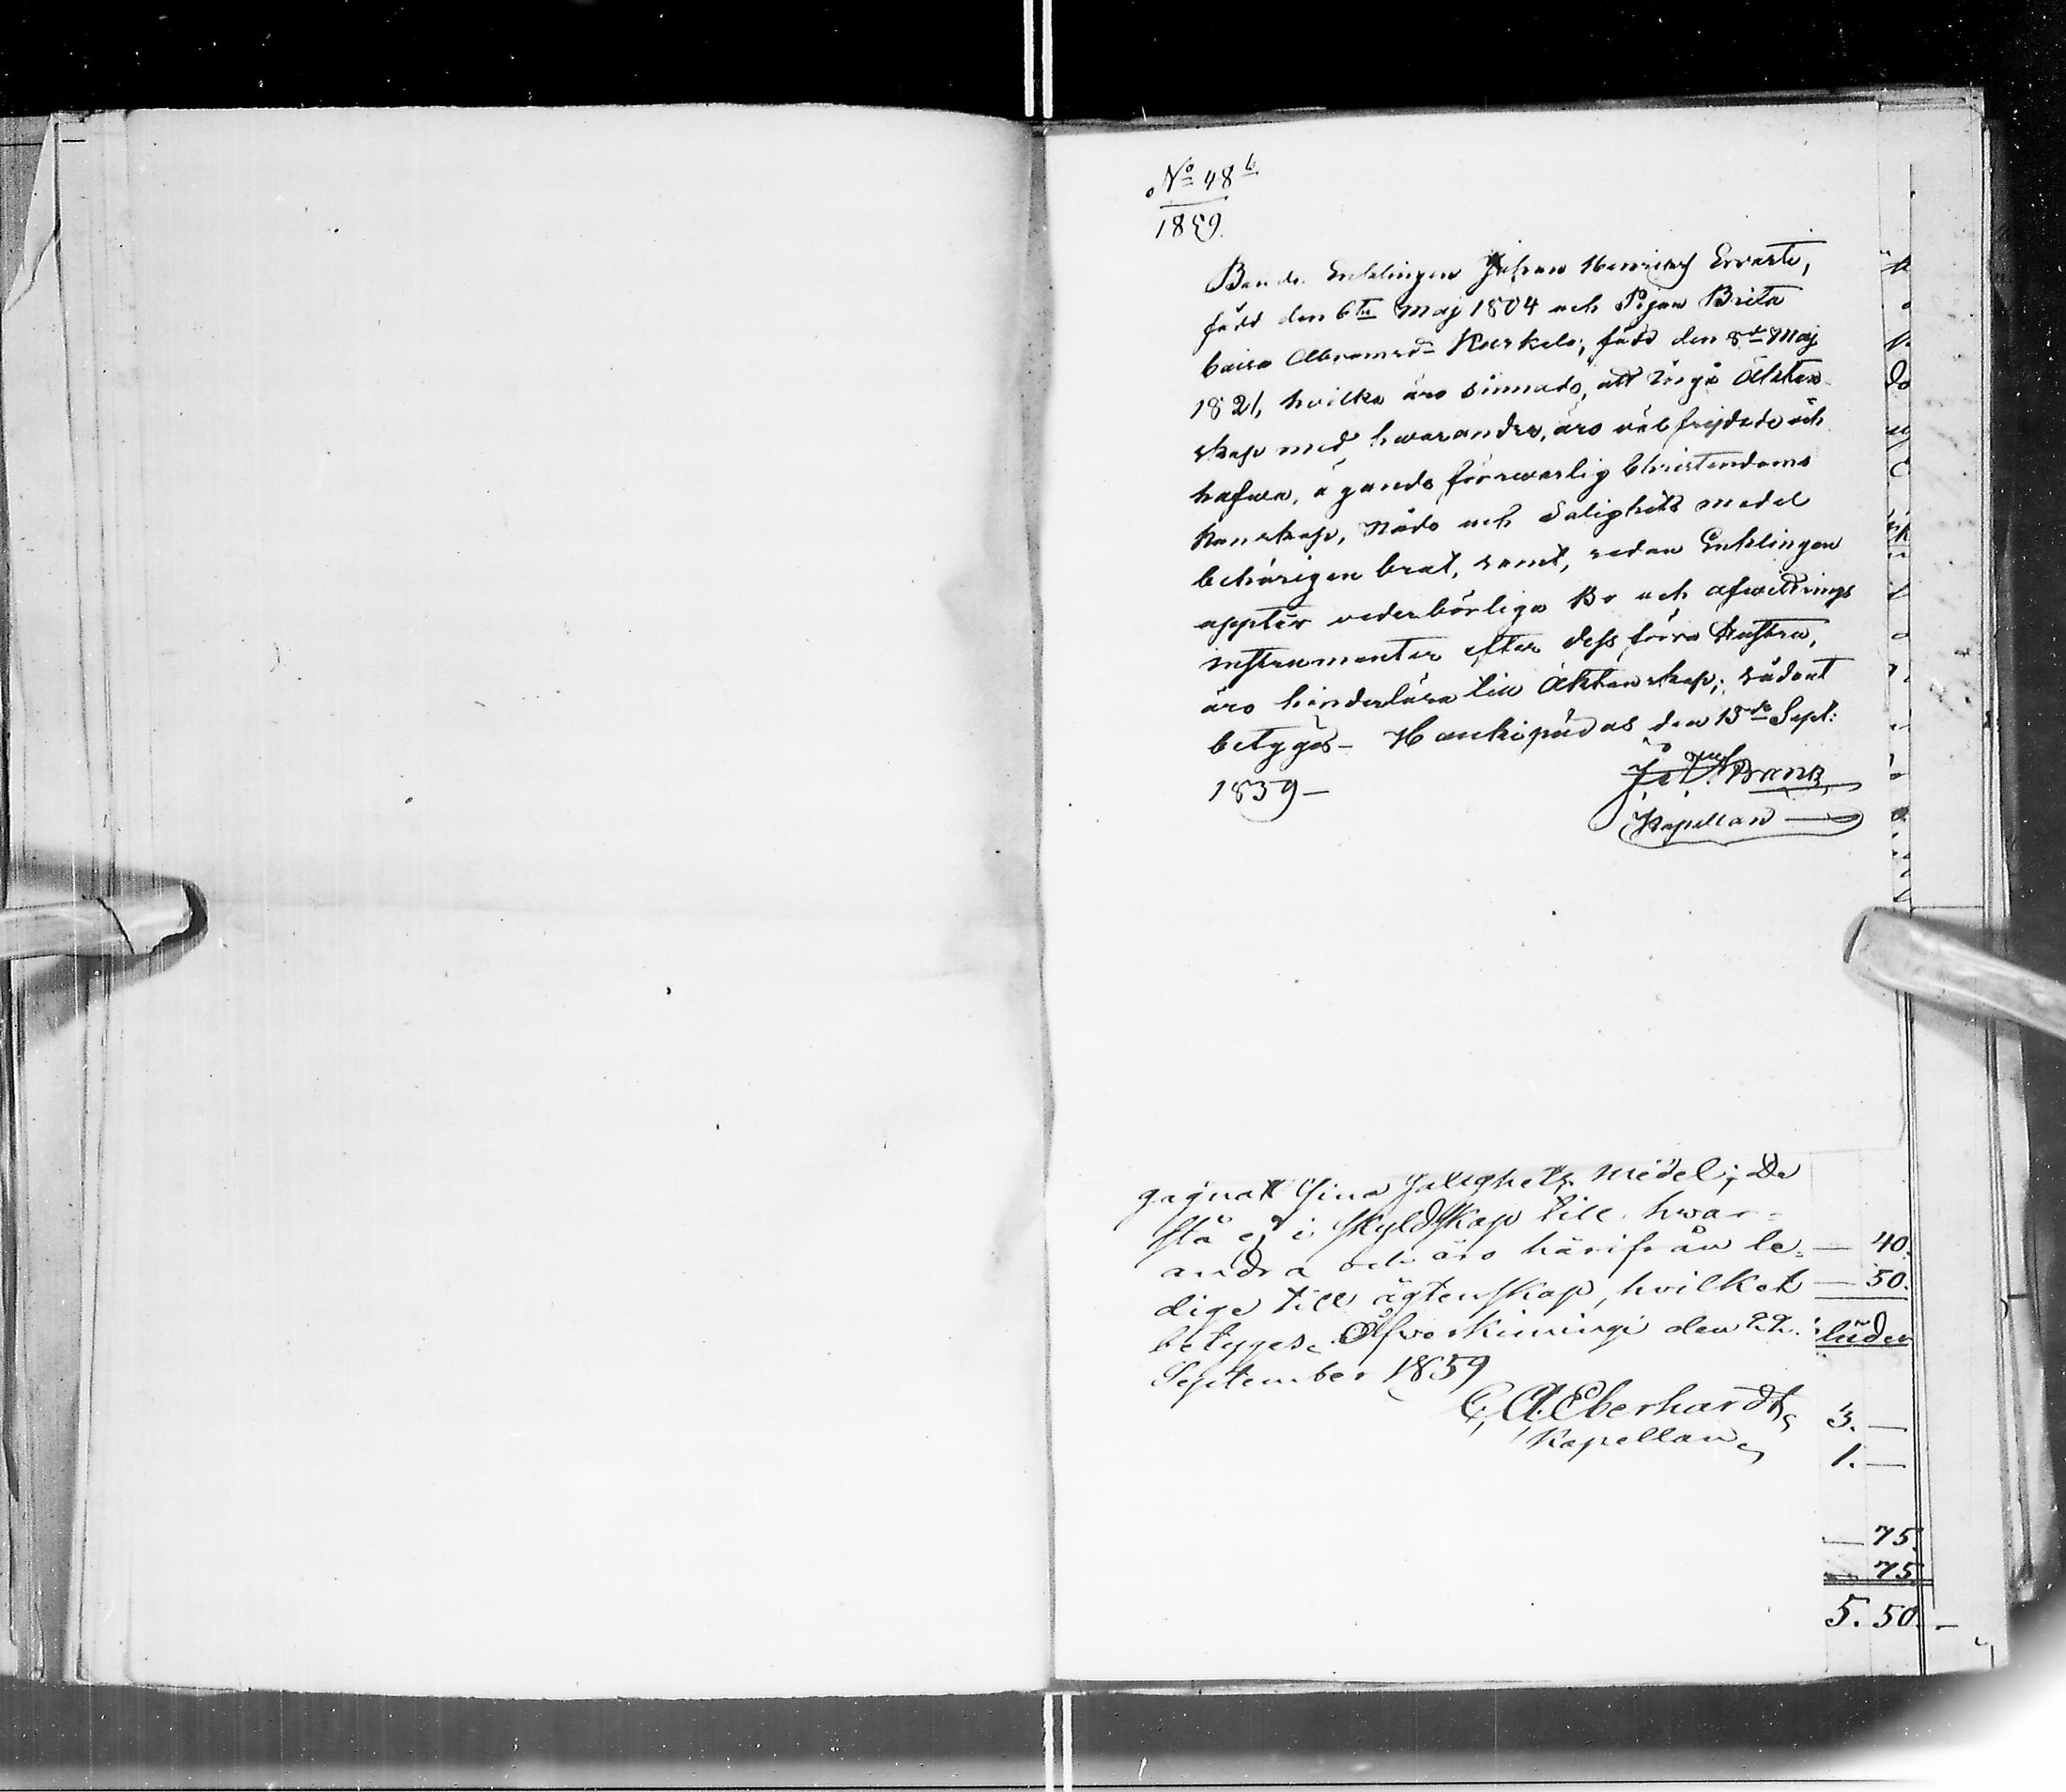 No 48 b
1859.
Bonde Enklingen Johan Henrich Ervasti,
född den 6te Maj 1804 och Pigan Brita
Caisa Abramsd:r Kurkela, född den 8de Maj
1821, hvilka äro sinnade, att ingå Äkten
skap med hvarandra, äro väl frejdade och
hafwa, ägande förswarlig Christendoms
kunskap, Nåde och Salighets medel
behörigen brukat, samt, sedan Enklingen
upptér vederbörliga Bo och afwittrings
instrumenter efter dess förra hustru,
äro hinderlösa till Äktenskap; sådant
betygas – Haukipudas den 13de Sept:
1859 –
Kapellan
gagnat sina Salighets medel; De
stå ej i skyldskap till hwar=
andra och äro härifrån le=
dige till ägtenskap, hvilket
betyges. Öfverkiiminge den 22.
September 1859
C. A. Eberhardt,
Kapellan
— 40.
— 50.
3. —
1. —
— 75.
75.
5. 50. –